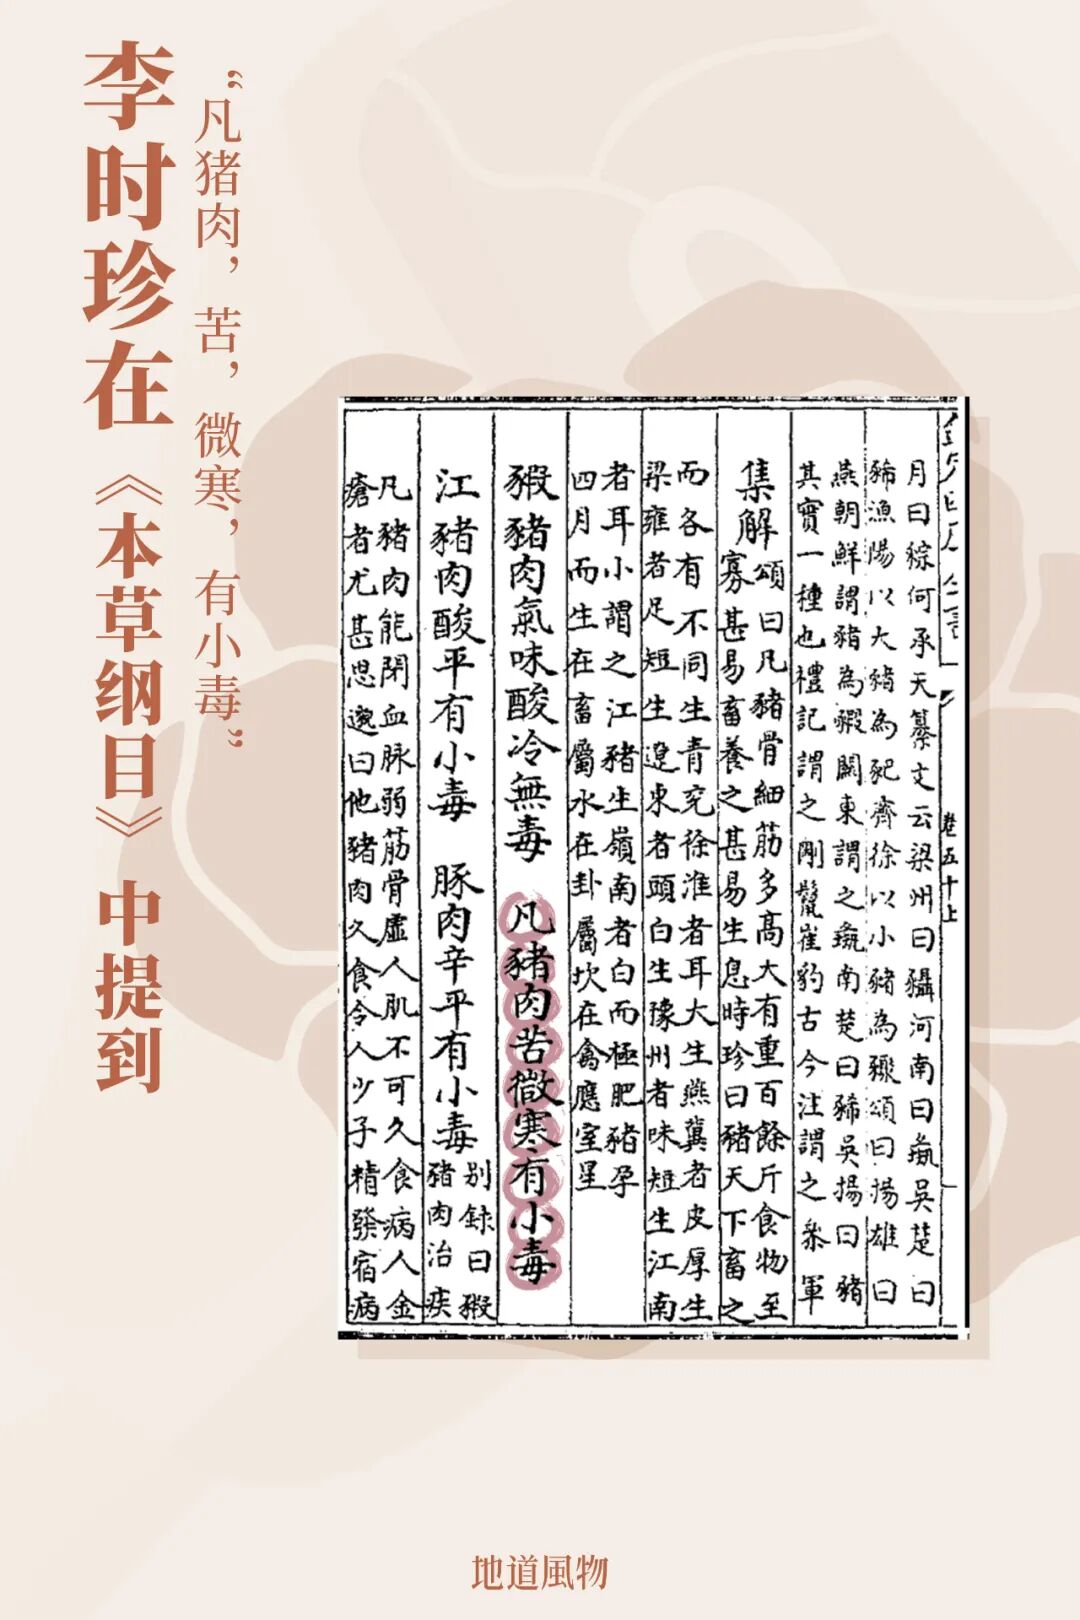 李时珍在《本草纲目》中提到
“凡猪肉，苦，微寒，有小毒”
卷五十上
月曰豥何承天纂文云梁州曰䝙河南曰彘吳楚曰
豨漁陽以大豬為豝齊徐以小豬為䝐頌曰揚雄曰
燕朝鮮謂豬為豭關東謂之彘南楚曰豨吳揚曰豬
其實一種也禮記謂之剛鬣崔豹古今注謂之參軍
集解頌曰凡豬骨細筋多高大有重百餘斤食物至
寡甚易畜養之甚易生息時珍曰豬天下畜之
而各有不同生青兖徐淮者耳大生燕冀者皮厚生
梁雍者足短生遼東者頭白生豫州者味短生江南
者耳小謂之江豬生嶺南者白而極肥豬孕
四月而生在畜屬水在卦屬坎在禽應室星
豭豬肉氣味酸冷無毒 凡豬肉苦微寒有小毒
江豬肉酸平有小毒 豚肉辛平有小毒 別録曰豭
豬肉治疾
凡豬肉能閉血脉弱筋骨虛人肌不可久食病人金
瘡者尤甚思邈曰他豬肉久食令人少子精發宿病
地道風物